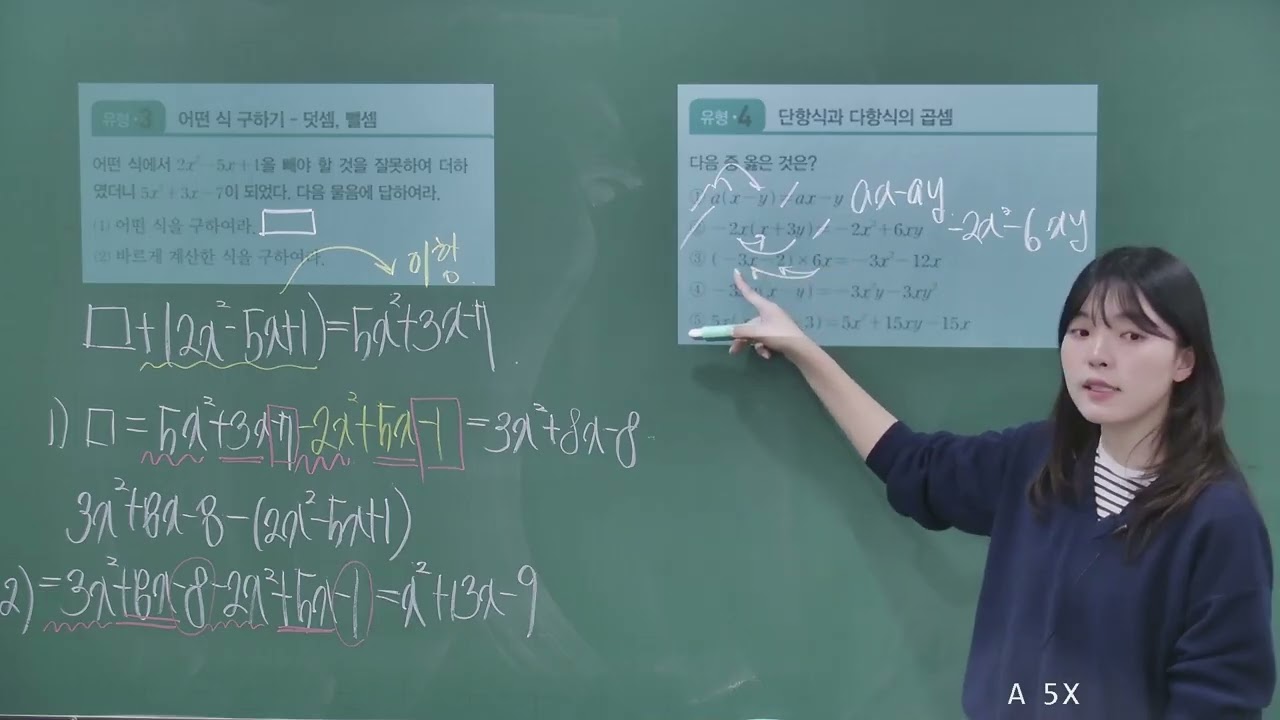 유형·3 어떤 식 구하기 - 덧셈, 뺄셈
어떤 식에서 2x²-5x+1을 빼야 할 것을 잘못하여 더하
였더니 5x²+3x-7이 되었다. 다음 물음에 답하여라.
(1) 어떤 식을 구하여라.
(2) 바르게 계산한 식을 구하여라.
이항
□+(2x²-5x+1)=5x²+3x-7
1) □=5x²+3x-7-2x²+5x-1=3x²+8x-8
3x²+8x-8-(2x²-5x+1)
2) =3x²+8x-8-2x²+5x-1=x²+13x-9
유형·4 단항식과 다항식의 곱셈
다음 중 옳은 것은?
① a(x-y)=ax-y ax-ay
② -2x(x+3y)=-2x²+6xy -2x²-6xy
③ (-3x-2)×6x=-3x²-12x
④ x-y)=-3x²y-3xy²
⑤ 5x( 3)=5x²+15xy-15x
A 5X